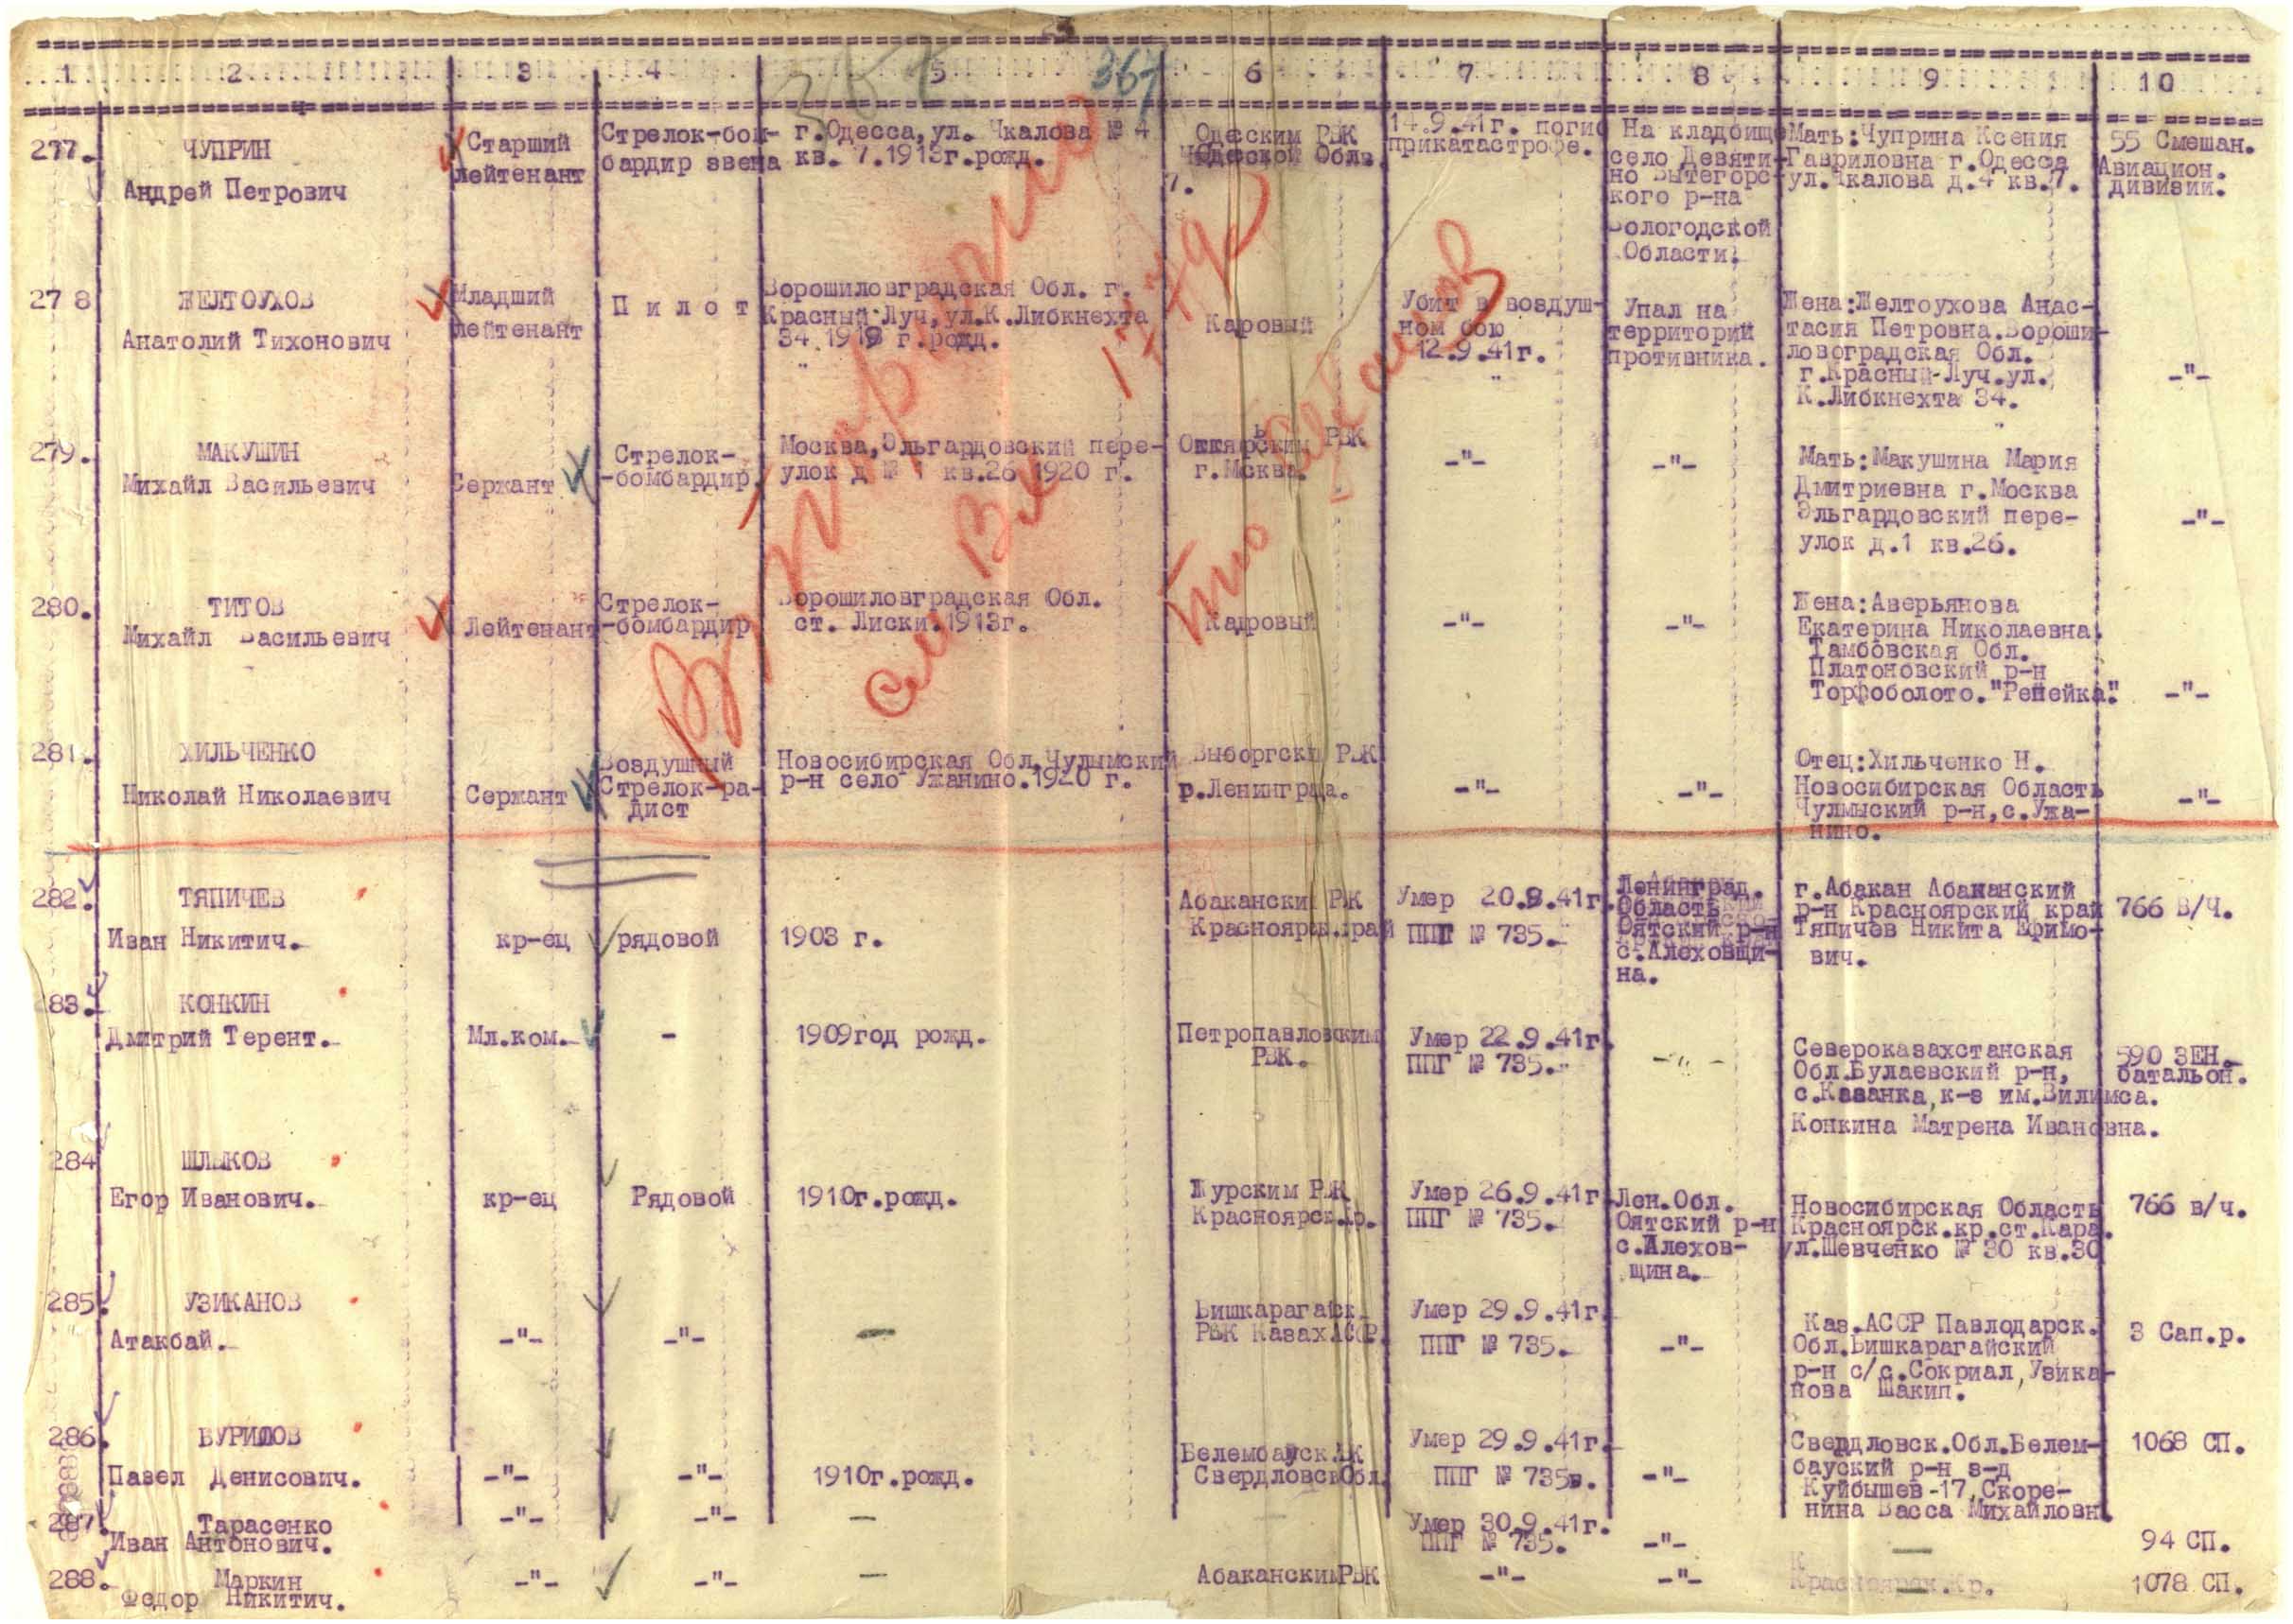 1 2 3 4 5 6 7 8 9 10
367
277. ЧУПРИН
Андрей Петрович
Старший
лейтенант
Стрелок-бом-
бардир звена
г.Одесса,ул. Чкалова № 4
кв. 7.1913г.рожд.
Одесским РВК
Одесской Облв.
14.9.41г. погиб
прикатастрофе.
На кладбище
село Девяти-
но Вытегорс-
кого р-на
Вологодской
Области.
Мать:Чуприна Ксения
Гавриловна г.Одесса
ул.Чкалова д.4 кв.7.
55 Смешан.
Авиацион.
дивизии.
278 ЖЕЛТОУХОВ
Анатолий Тихонович
Младший
лейтенант
П и л о т
Ворошиловградская Обл. г.
Красный Луч,ул.К.Либкнехта
34.1918 г.рожд.
Каровый
Убит в воздуш-
ном бою
12.9.41г.
Упал на
территорий
противника.
Жена:Желтоухова Анас-
тасия Петровна.Вороши-
ловоградская Обл.
г.Красный-Луч.ул.
К.Либкнехта 34.
-"-
279. МАКУШИН
Михайл Васильевич
Сержант
Стрелок-
-бомбардир
Москва,Эльгардовский пере-
улок д № 1 кв.26 1920 г.
РВК
г.Мсква.
-"-
-"-
Мать:Макушина Мария
Дмитриевна г.Москва
Эльгардовский пере-
улок д.1 кв.26.
-"-
280. ТИТОВ
Михайл Васильевич
Лейтенант
Стрелок-
-бомбардир
Ворошиловградская Обл.
ст. Лиски.1913г.
Кадровый
-"-
-"-
Жена:Аверьянова
Екатерина Николаевна.
Тамбовская Обл.
Платоновский р-н
Торфоболото."Репейка".
-"-
281. ХИЛЬЧЕНКО
Николай Николаевич
Сержант
Воздушный
Стрелок-ра-
дист
Новосибирская Обл.Чулымский
р-н село Ужанино.1920 г.
Выборгски РВК
р.Ленинграа.
-"-
-"-
Отец:Хильченко Н.
Новосибирская Область
Чулмыский р-н,с.Ужа-
нино.
-"-
282. ТЯПИЧЕВ
Иван Никитич.
кр-ец
рядовой
1903 г.
Абакански РВК
Красноярск.край
Умер 20.9.41г.
ППГ № 735.
Ленинград.
Область
Оятский р-н
с.Алеховщи-
на.
г.Абакан Абаканский
р-н Красноярский край
Тяпичев Никита Ефимо-
вич.
766 В/Ч.
83. КОНКИН
Дмитрий Терент.
Мл.ком.
-
1909год рожд.
Петропавловским
РВК.
Умер 22.9.41г.
ППГ № 735.
-"-
Североказахстанская
Обл.Булаевский р-н,
с.Казанка,к-з им.Вилимса.
Конкина Матрена Ивановна.
590 ЗЕН.
батальон.
284 ШЛЫКОВ
Егор Иванович.
кр-ец
Рядовой
1910г.рожд.
Журским РВК
Красноярск.кр.
Умер 26.9.41г
ППГ № 735.
Лен.Обл.
Оятский р-н
с.Алехов-
щина.
Новосибирская Область
Красноярск.кр.ст.Кара.
ул.Шевченко № 30 кв.30
766 в/ч.
285. УЗИКАНОВ
Атакбай.
-"-
-"-
—
Бишкарагайск.
РВК Казах.АССР.
Умер 29.9.41г.
ППГ № 735.
-"-
Каз.АССР Павлодарск.
Обл.Бишкарагайский
р-н с/с.Сокриал,Узика-
нова Шакип.
3 Сап.р.
286. БУРИЛОВ
Павел Денисович.
-"-
-"-
1910г.рожд.
Белембауск.
Свердловск.Обл.
Умер 29.9.41г.
ППГ № 735в.
-"-
Свердловск.Обл.Белем-
бауский р-н з-д
Куйбышев-17,Скоре-
нина Васса Михайловн.
1068 СП.
287. Тарасенко
Иван Антонович.
-"-
-"-
—
Умер 30.9.41г.
ППГ № 735.
-"-
—
94 СП.
288. Маркин
Федор Никитич.
-"-
-"-
—
АбаканскимРВК
-"-
-"-
1078 СП.